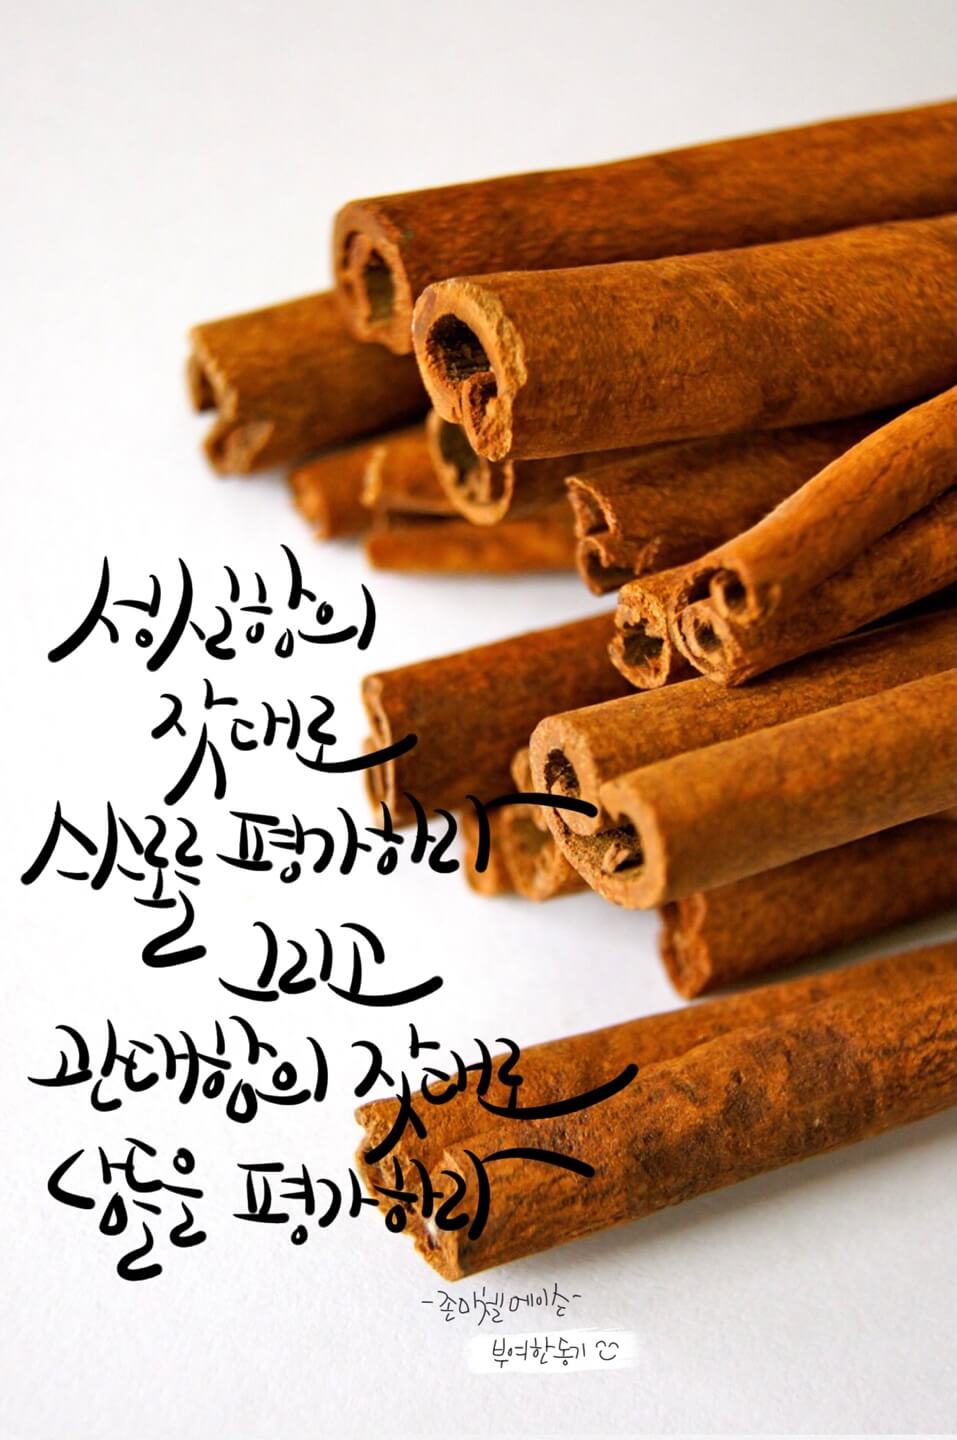 성실함의
잣대로
스스로를 평가하라
그리고
관대함의 잣대로
남들을 평가하라
-존 미첼 메이슨-
부여한동기